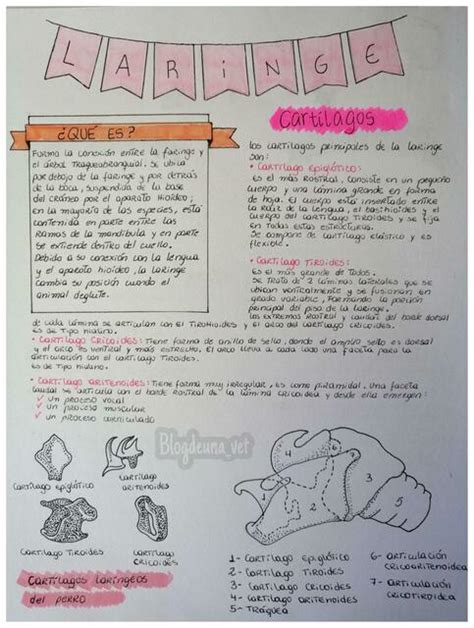 LARINGE
¿QUÉ ES?
Forma la conexión entre la faringe y
el árbol traqueobronquial. Se ubica
por debajo de la faringe y por detrás
de la boca, suspendida de la base
del cráneo por el aparato hioideo;
en la mayoría de las especies, está
contenida en parte entre las
ramas de la mandíbula y en parte
se extiende dentro del cuello.
Debido a su conexión con la lengua
y el aparato hioideo, la laringe
cambia su posición cuando el
animal deglute.
Cartílagos
los cartílagos principales de la laringe
son:
• Cartílago Epiglótico:
Es el más rostral, consiste en un pequeño
cuerpo y una lámina grande en forma
de hoja. El cuerpo está insertado entre
la raíz de la lengua, el basihioides y el
cuerpo del cartílago tiroides y se fija
en todas estas estructuras.
Se compone de cartílago elástico y es
flexible.
• Cartílago Tiroides:
Es el más grande de todos.
Se trata de 2 láminas laterales que se
ubican ventralmente y se fusionan en
grado variable, formando la porción
principal del piso de la laringe.
los extremos rostral y caudal del borde dorsal
de cada lámina se articulan con el tirohioides y el arco del cartílago cricoides.
Es de tipo hialino.
• Cartílago Cricoides: tiene forma de anillo de sello, donde el amplio sello es dorsal
y el arco es ventral y más estrecho. El arco lleva a cada lado una faceta para la
articulación con el cartílago tiroides.
Es de tipo hialino.
• Cartílago Aritenoides: tiene forma muy irregular, es como piramidal. Una faceta
caudal se articula con el borde rostral de la lámina cricoidea y desde ella emergen:
✓ un proceso vocal
✓ un proceso muscular
✓ un proceso corniculado
Blogdeuna_vet
Cartílago Epiglótico
Cartílago
Aritenoides
Cartílago Tiroides
Cartílago
Cricoides
Cartílagos laríngeos
del perro
1
2
3
4
5
6
7
1- Cartílago Epiglótico
2- Cartílago Tiroides
3- Cartílago Cricoides
4- Cartílago Aritenoides
5- Tráquea
6- Articulación
cricoaritenoidea
7- Articulación
cricotiroidea